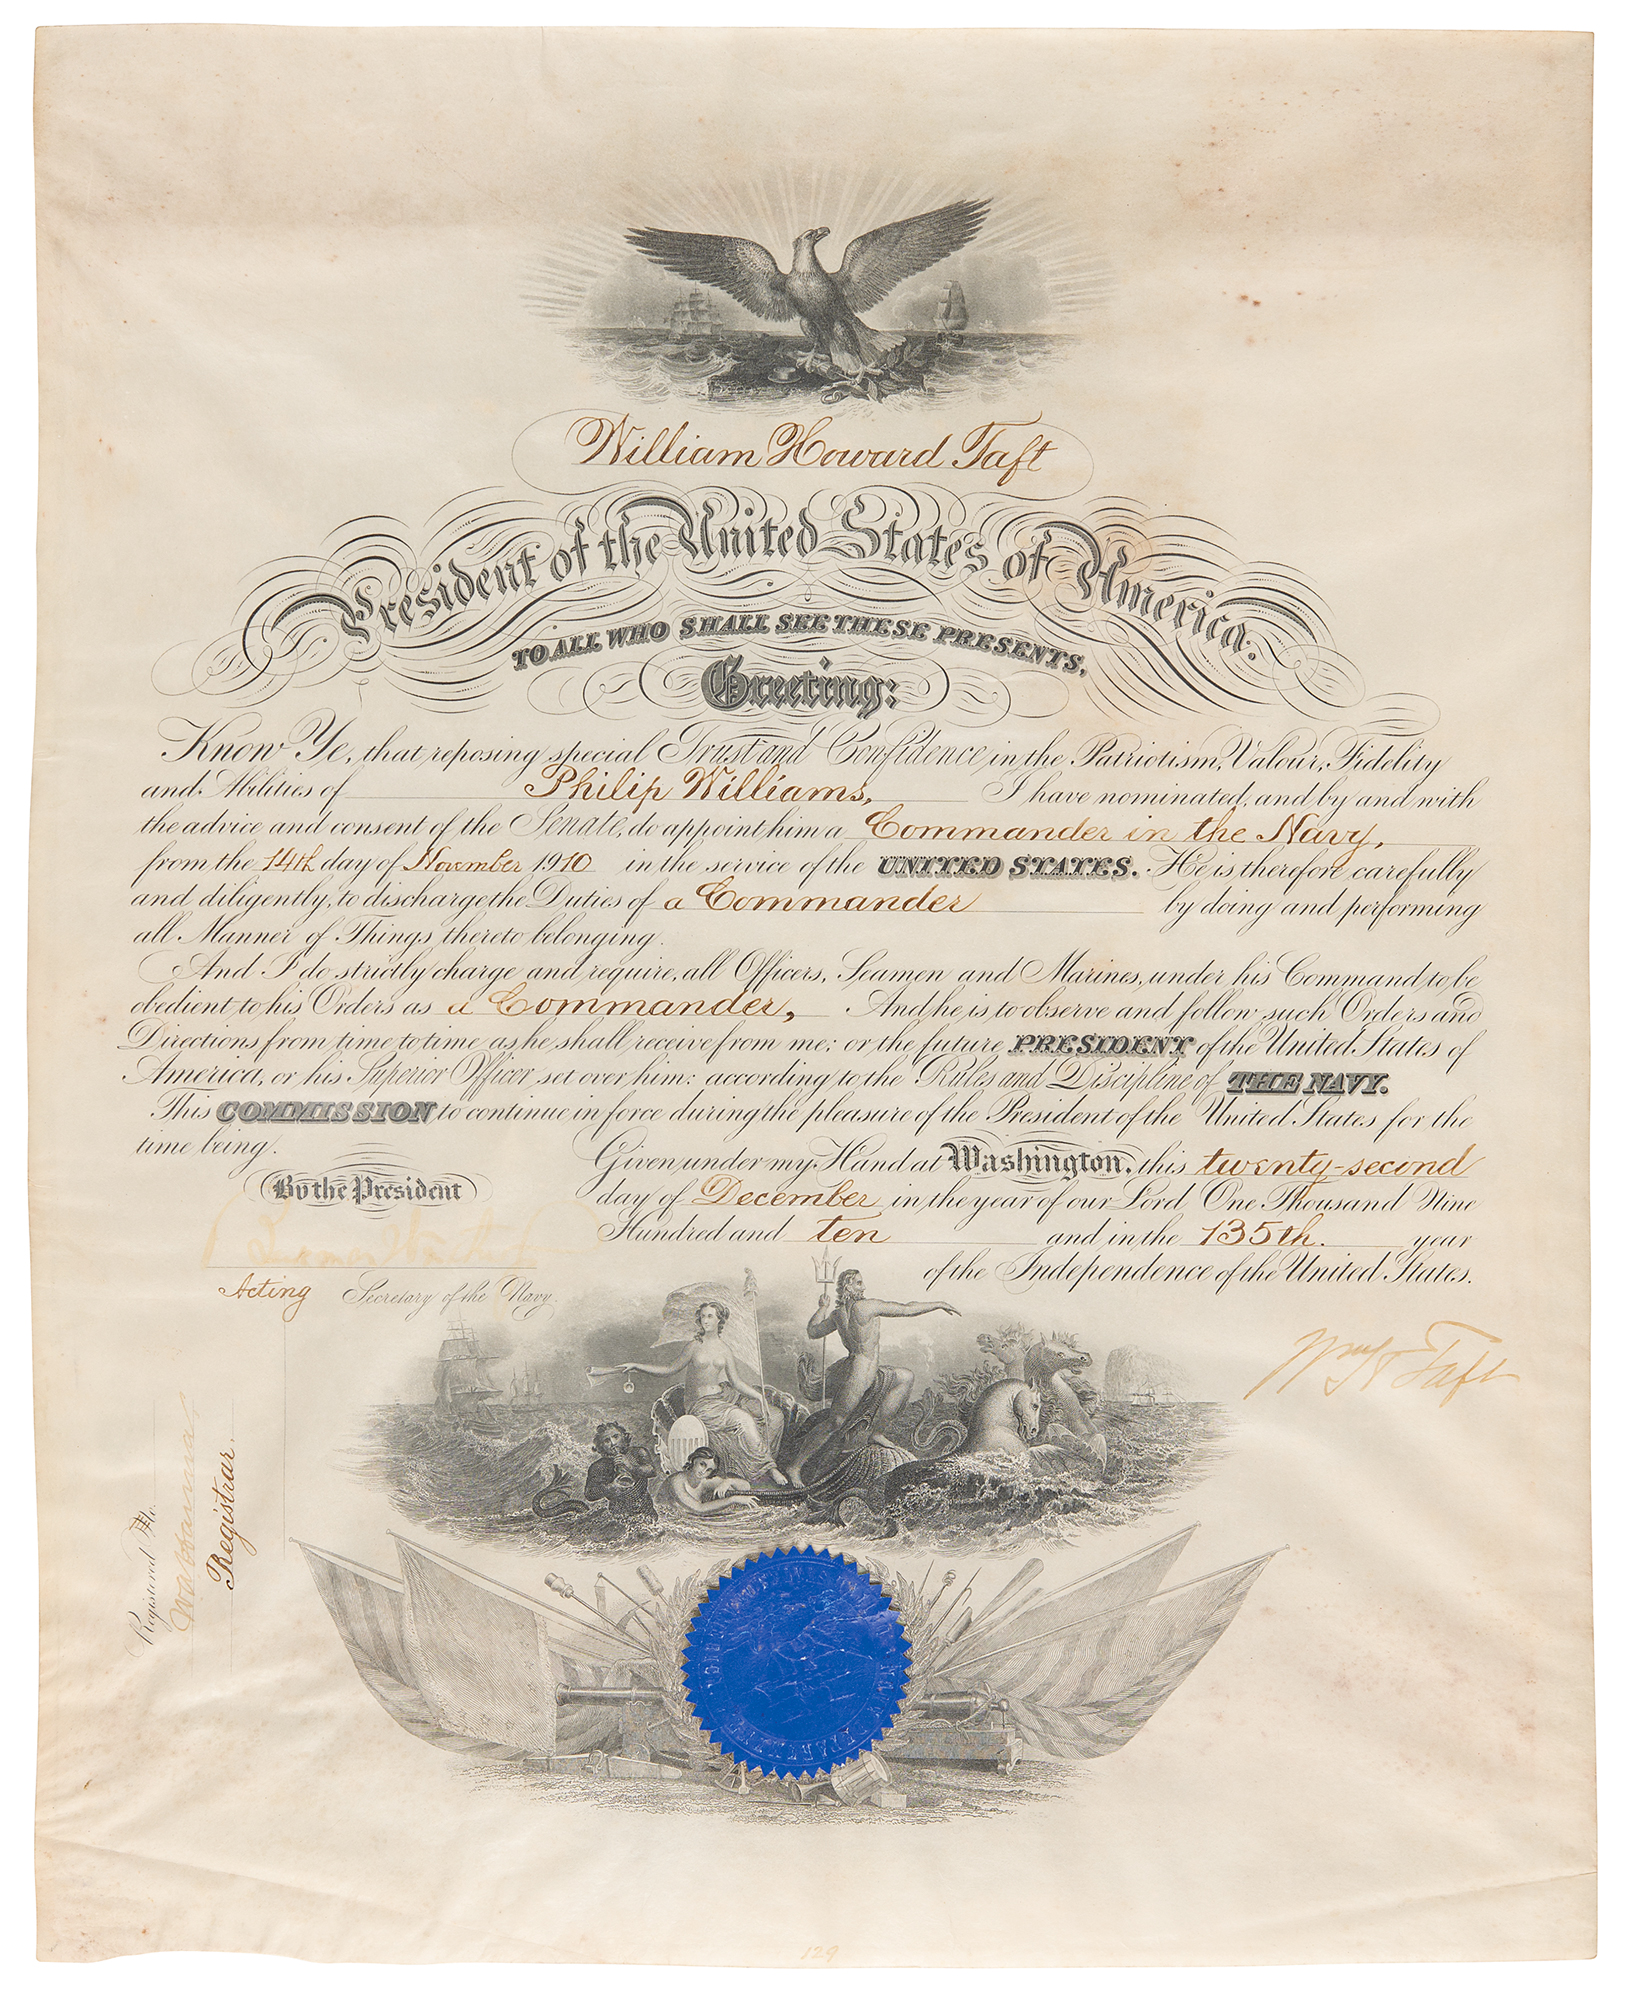 William Howard Taft
President of the United States of America.
TO ALL WHO SHALL SEE THESE PRESENTS,
Greeting:
Know Ye, that reposing special Trust and Confidence in the Patriotism, Valour, Fidelity
and Abilities of Philip Williams, I have nominated, and by and with
the advice and consent of the Senate, do appoint him a Commander in the Navy,
from the 14th day of November 1910 in the service of the UNITED STATES. He is therefore carefully
and diligently, to discharge the Duties of a Commander by doing and performing
all Manner of Things thereto belonging.
And I do strictly charge and require, all Officers, Seamen and Marines, under his Command to be
obedient to his Orders as a Commander, And he is to observe and follow such Orders and
Directions from time to time as he shall receive from me; or the future PRESIDENT of the United States of
America, or his Superior Officer set over him: according to the Rules and Discipline of THE NAVY.
This COMMISSION to continue in force during the pleasure of the President of the United States for the
time being.
Given under my Hand at Washington, this twenty-second
day of December in the year of our Lord One Thousand Nine
Hundred and ten and in the 135th. year
of the Independence of the United States.
By the President
Acting Secretary of the Navy.
Wm H Taft
Registered No.
Registrar.
129